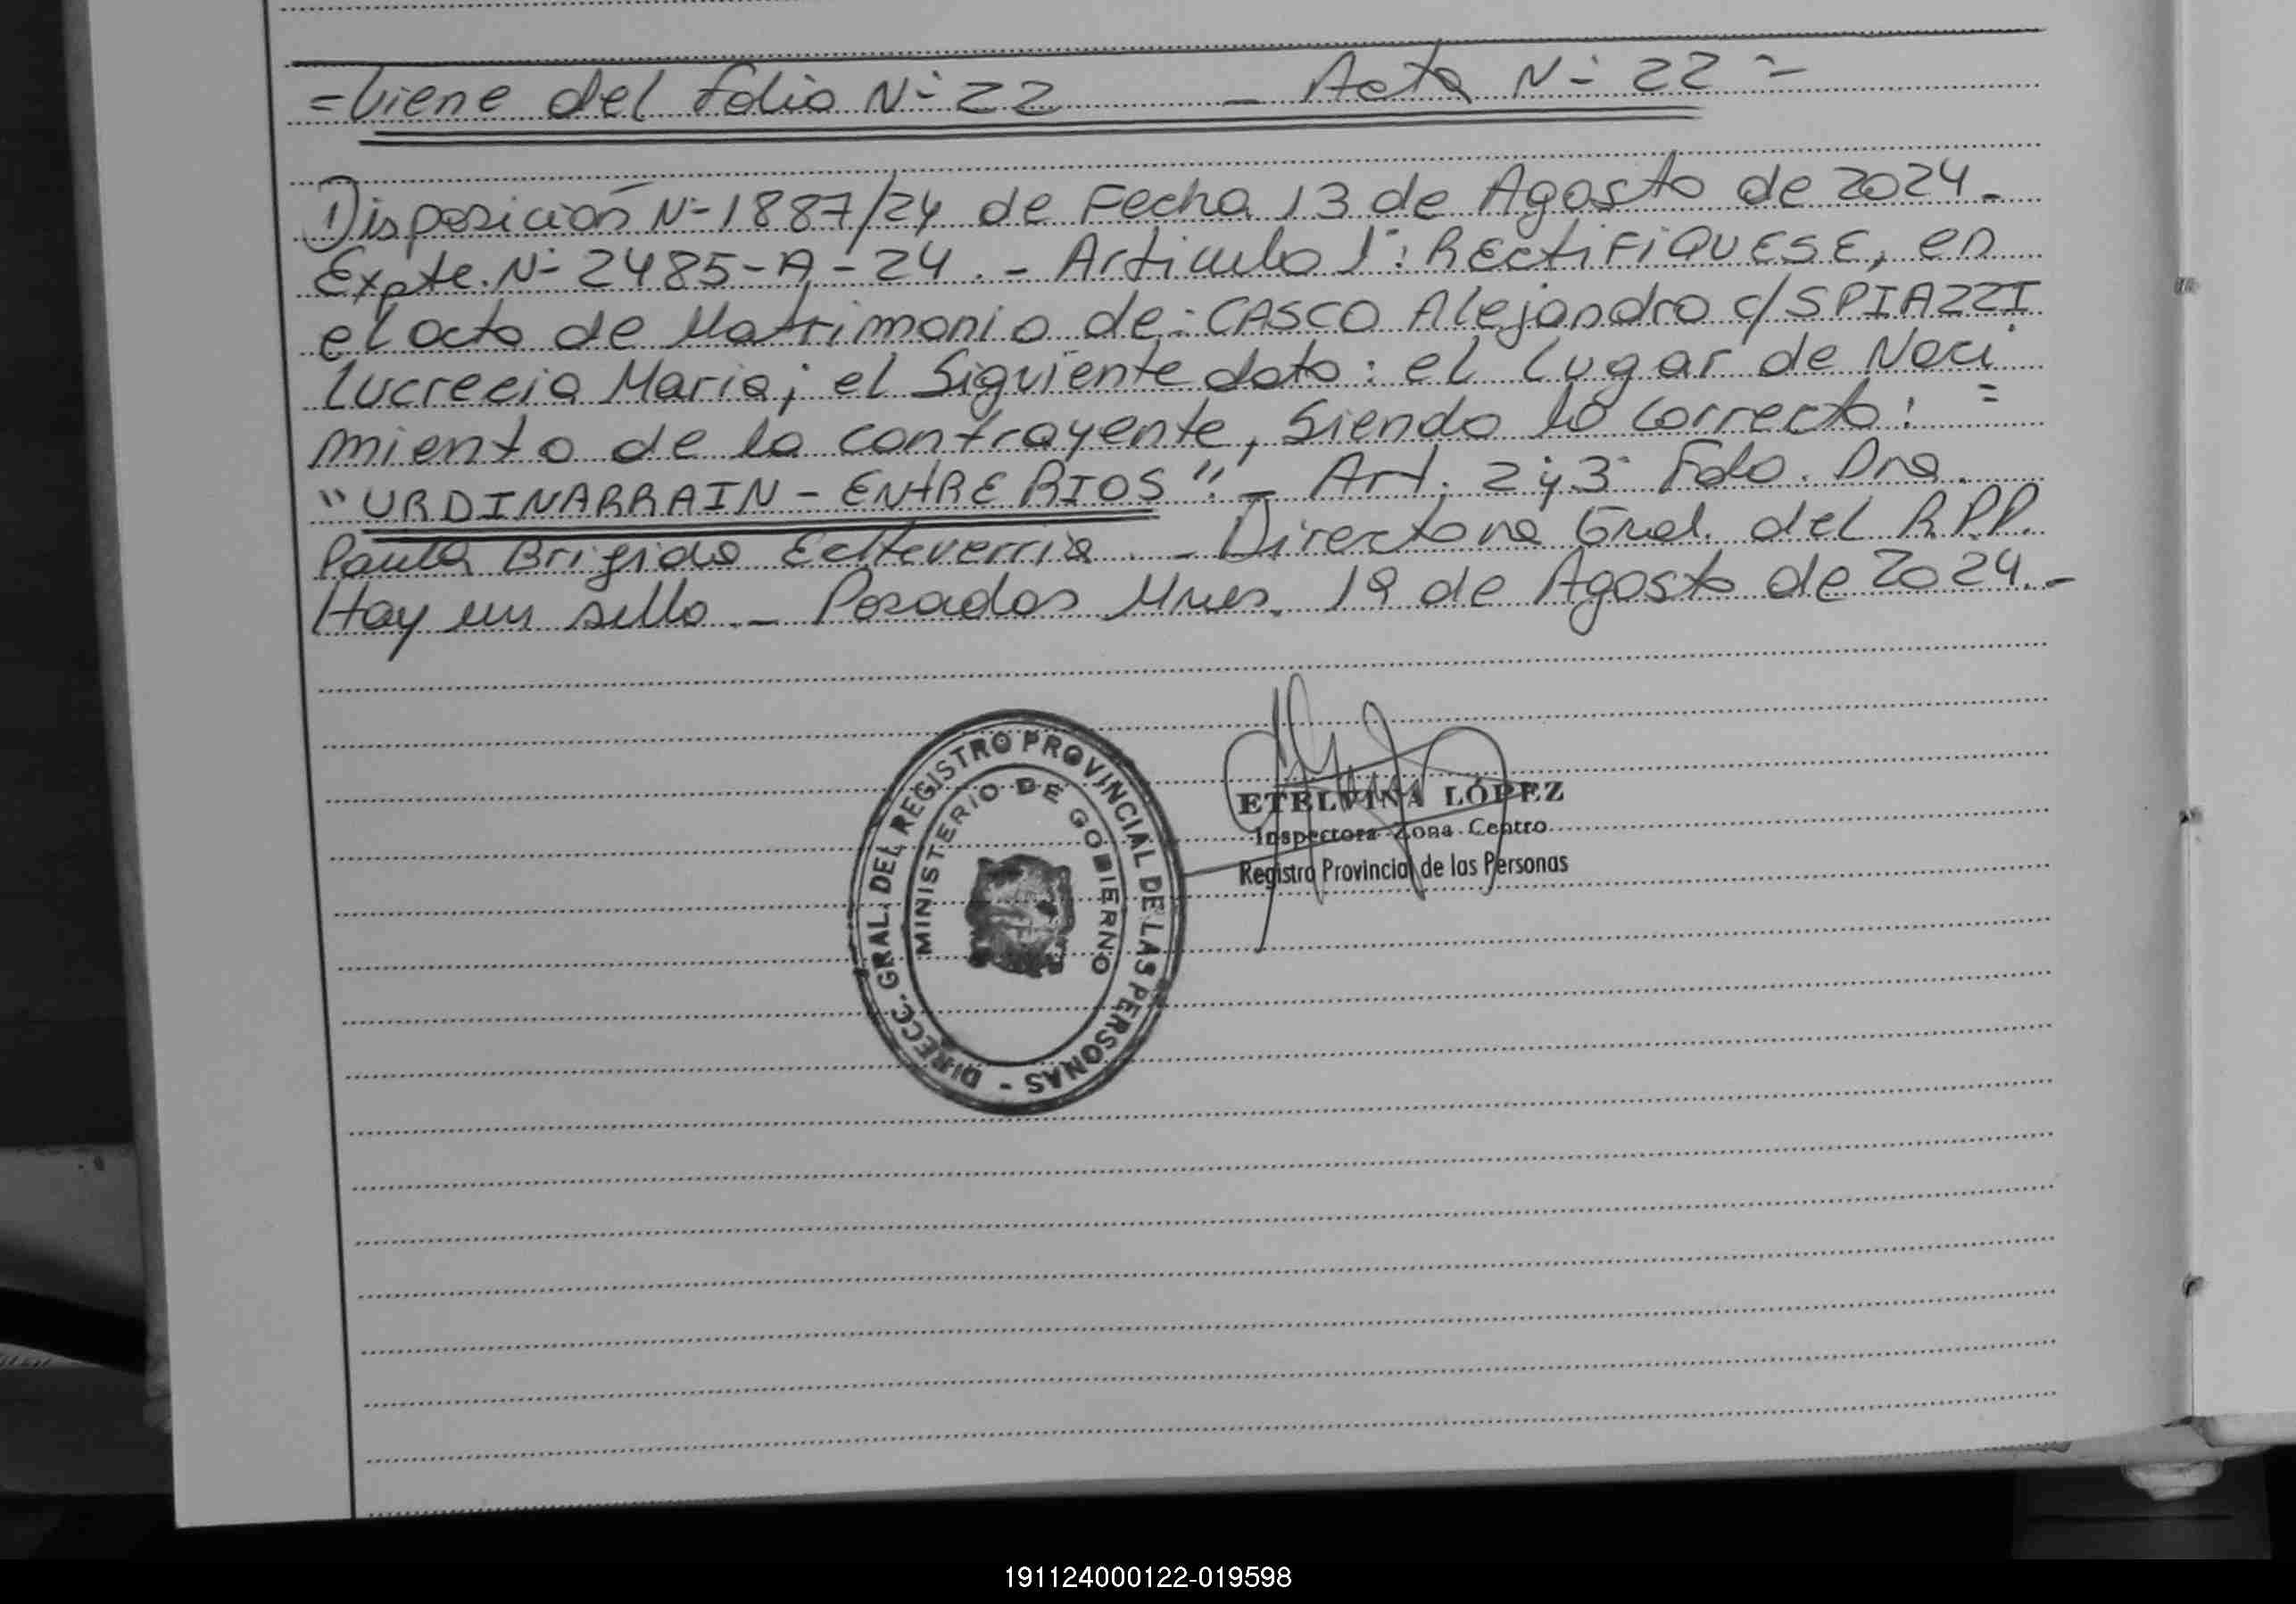 =Viene del Folio Nº 22 - Acta Nº 22=
Disposición Nº 1887/24 de Fecha 13 de Agosto de 2024.-
Expte. Nº 2485-A-24.- Articulo 1º: RECTIFIQUESE, en
el acta de Matrimonio de: CASCO Alejandro c/ SPIAZZI
Lucrecia Maria; el Siguiente dato: el Lugar de Naci=
miento de la contrayente, Siendo lo correcto:
"URDINARRAIN - ENTRE RIOS".- Art. 2 y 3 Fdo. Dra.
Paula Brigida Echeverria.- Directora Gral. del R.P.P.
Hay un sello.- Posadas Mnes. 19 de Agosto de 2024.-
DIRECC. GRAL. DEL REGISTRO PROVINCIAL DE LAS PERSONAS -
MINISTERIO DE GOBIERNO
ETELVINA LÓPEZ
Inspectora Zona Centro
Registro Provincial de las Personas
191124000122-019598